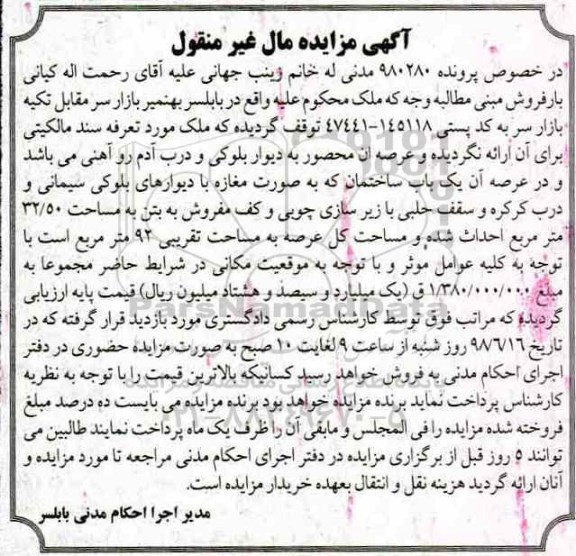 آگهی مزایده مال غیر منقول
در خصوص پرونده ۹۸۰۲۸۰ مدنی له خانم زینب جهانی علیه آقای رحمت اله کیانی
بارفروش مبنی مطالبه وجه که ملک محکوم علیه واقع در بابلسر بهنمیر بازار سر مقابل تکیه
بازار سر به کد پستی ۱۴۵۱۱۸-۴۷۴۴۱ توقف گردیده که ملک مورد تعرفه سند مالکیتی
برای آن ارائه نگردیده و عرصه آن محصور به دیوار بلوکی و درب آدم رو آهنی می باشد
و در عرصه آن یک باب ساختمان که به صورت مغازه با دیوارهای بلوکی سیمانی و
درب کرکره و سقف حلبی با زیر سازی چوبی و کف مفروش به بتن به مساحت ۳۲/۵۰
متر مربع احداث شده و مساحت کل عرصه به مساحت تقریبی ۹۲ متر مربع است با
توجه به کلیه عوامل موثر و با توجه به موقعیت مکانی در شرایط حاضر مجموعا به
مبلغ ۱/۳۸۰/۰۰۰/۰۰۰ ق (یک میلیارد و سیصد و هشتاد میلیون ریال) قیمت پایه ارزیابی
گردیده که مراتب فوق توسط کارشناس رسمی دادگستری مورد بازدید قرار گرفته که در
تاریخ ۹۸/۶/۱۶ روز شنبه از ساعت ۹ لغایت ۱۰ صبح به صورت مزایده حضوری در دفتر
اجرای احکام مدنی به فروش خواهد رسید کسانیکه بالاترین قیمت را با توجه به نظریه
کارشناس پرداخت نماید برنده مزایده خواهد بود برنده مزایده می بایست ده درصد مبلغ
فروخته شده مزایده را فی المجلس و مابقی آن را ظرف یک ماه پرداخت نمایند طالبین می
توانند ۵ روز قبل از برگزاری مزایده در دفتر اجرای احکام مدنی مراجعه تا مورد مزایده و
آنان ارائه گردید هزینه نقل و انتقال بعهده خریدار مزایده است.
مدیر اجرا احکام مدنی بابلسر
ParsNamadData